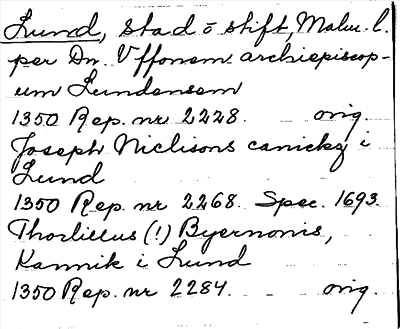 Lund, stad o stift, Malm. l.
per Dn. Uffonem archiepiscop-
um Lundensem
1350 Rep. nr 2228. orig.
Joseph Niclisons canicky i
Lund
1350 Rep. nr 2268. Spec. 1693.
Thorlillus (!) Byernonis,
Kannik i Lund
1350 Rep. nr 2284. orig.